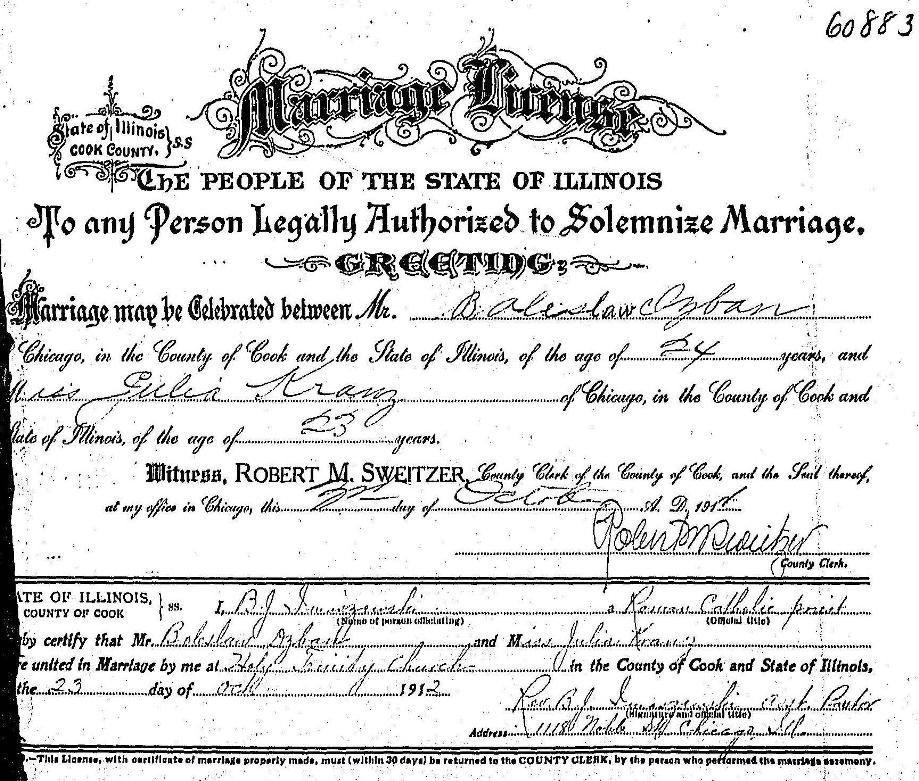 60883
Marriage License
State of Illinois } S.S
COOK COUNTY.
THE PEOPLE OF THE STATE OF ILLINOIS
To any Person Legally Authorized to Solemnize Marriage.
GREETING:
Marriage may be Celebrated between Mr. Boleslaw Ozban
Chicago, in the County of Cook and the State of Illinois, of the age of 24 years, and
Miss Julia Kranz of Chicago, in the County of Cook and
State of Illinois, of the age of 23 years.
Witness, ROBERT M. SWEITZER, County Clerk of the County of Cook, and the Seal thereof,
at my office in Chicago, this day of October A. D. 191
Robert M Sweitzer
County Clerk.
ATE OF ILLINOIS, } ss. I, B J a Roman Catholic priest
COUNTY OF COOK (Name of person officiating) (Official title)
by certify that Mr. Boleslaw Ozban and Miss Julia Kranz
e united in Marriage by me at Holy Trinity Church in the County of Cook and State of Illinois,
the 23 day of Oct 1912
Rev. B. J. Asst Pastor
(Signature and official title)
Address 1118 Noble St Chicago Ill.
.—This License, with certificate of marriage properly made, must (within 30 days) be returned to the COUNTY CLERK, by the person who performed the marriage ceremony.